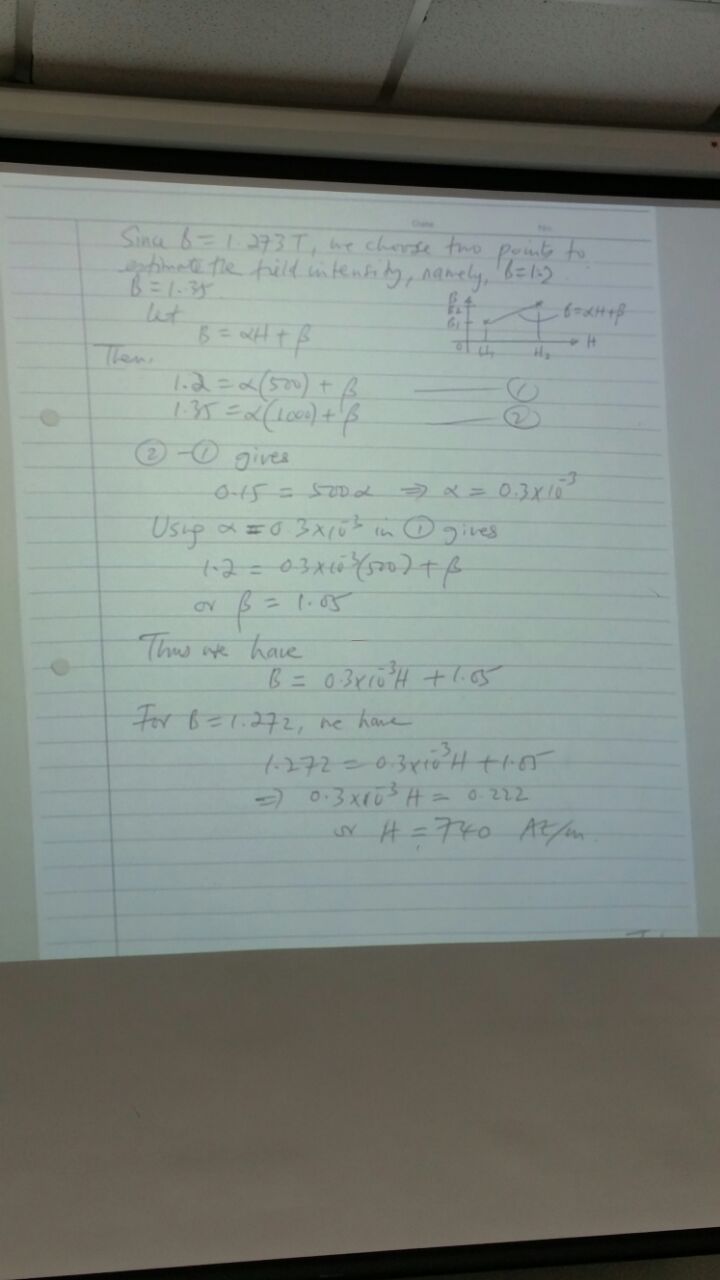 Since B = 1.273 T, we choose two points to
estimate the field intensity, namely, B=1.2
B = 1.35
Let
B = αH + β
B
B2
B1
0
H1
H2
H
B=αH+β
Then,
1.2 = α(500) + β ——— ①
1.35 = α(1000) + β ——— ②
② - ① gives
0.15 = 500α ⇒ α = 0.3×10⁻³
Using α = 0.3×10⁻³ in ① gives
1.2 = 0.3×10⁻³(500) + β
or β = 1.05
Thus we have
B = 0.3×10⁻³H + 1.05
For B = 1.272, we have
1.272 = 0.3×10⁻³H + 1.05
⇒ 0.3×10⁻³ H = 0.222
or H = 740 At/m.